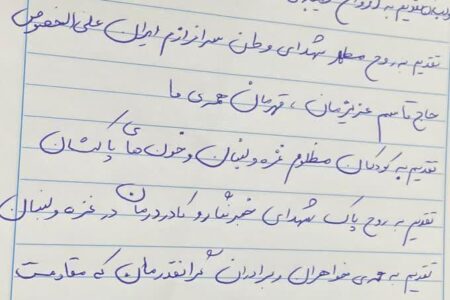 تقدیم به ارواح طیبه
تقدیم به روح مطهر شهدای وطن سرافرازم ایران علی الخصوص
حاج قاسم عزیزمان ، قهرمان همه‌ی ما
تقدیم به کودکان مظلوم غزه و لبنان و خون‌های پاکشان
تقدیم به روح پاک شهدای خبرنگار و کادر درمان در غزه و لبنان
تقدیم به همه‌ی خواهران و برادران گرانقدرمان که مقاومت